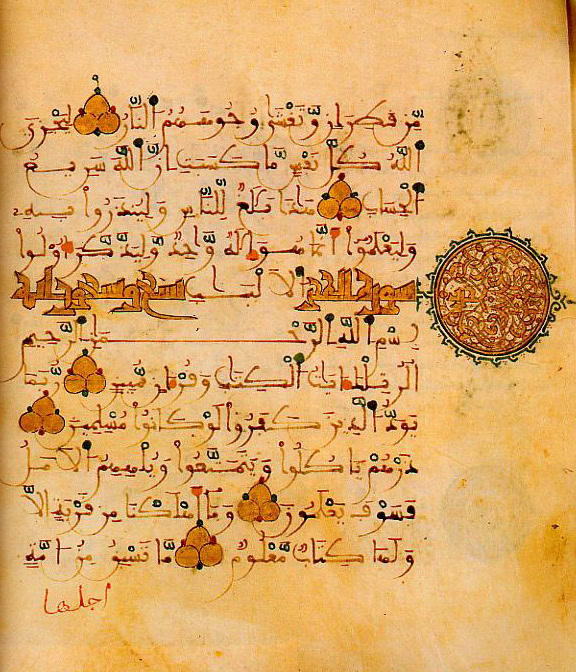 مِّن قَطِرَانٍ وَّتَغْشَىٰ وُجُوهَهُمُ النَّارُ لِيَجْزِيَ
اللَّهُ كُلَّ نَفْسٍ مَّا كَسَبَتْ إِنَّ اللَّهَ سَرِيعُ
الْحِسَابِ هَٰذَا بَلَٰغٌ لِّلنَّاسِ وَلِيُنذَرُوا بِهِ
وَلِيَعْلَمُوا أَنَّمَا هُوَ إِلَٰهٌ وَّاحِدٌ وَلِيَذَّكَّرَ أُولُوا
الْأَلْبَٰبِ
سورة الحجر تسع وتسعون اية
بِسْمِ اللَّهِ الرَّحْمَٰنِ الرَّحِيمِ
الر تِلْكَ ءَايَٰتُ الْكِتَٰبِ وَقُرْءَانٍ مُّبِينٍ رُّبَمَا
يَوَدُّ الَّذِينَ كَفَرُوا لَوْ كَانُوا مُسْلِمِينَ
ذَرْهُمْ يَاكُلُوا وَيَتَمَتَّعُوا وَيُلْهِهِمُ الْأَمَلُ
فَسَوْفَ يَعْلَمُونَ وَمَا أَهْلَكْنَا مِن قَرْيَةٍ إِلَّا
وَلَهَا كِتَابٌ مَّعْلُومٌ مَّا تَسْبِقُ مِنْ أُمَّةٍ
اجلها